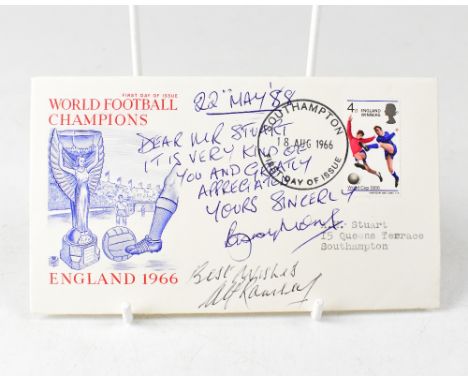 FIRST DAY OF ISSUE
WORLD FOOTBALL
CHAMPIONS
ENGLAND 1966
22nd MAY '88
DEAR MR STUART
IT IS VERY KIND OF
YOU AND GREATLY
APPRECIATED
YOURS SINCERLY
Best Wishes
Alf Ramsey
SOUTHAMPTON
18 AUG 1966
FIRST DAY OF ISSUE
4D ENGLAND
WINNERS
World Cup 1966
Stuart
15 Queens Terrace
Southampton